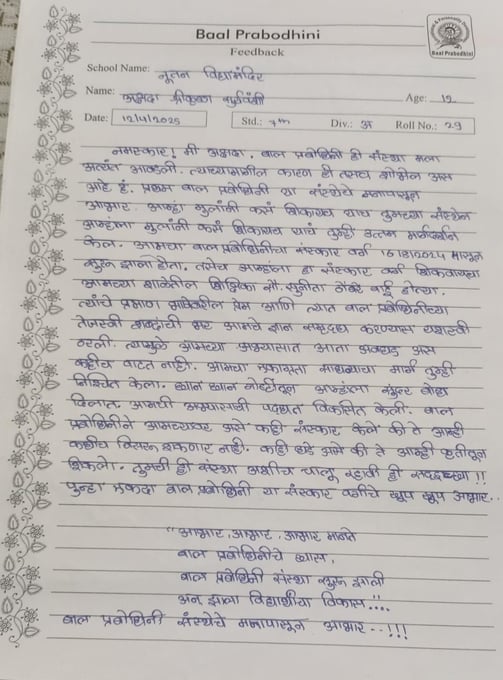 Baal Prabodhini
Feedback
Baal Prabodhini
School Name: नूतन विद्यामंदिर
Name: अक्षदा श्रीकृष्ण सूर्यवंशी
Age: 12
Date: 12/4/2025
Std.: 7th
Div.: अ
Roll No.: 29
नमस्कार! मी अक्षदा, बाल प्रबोधिनी ही संस्था मला
अत्यंत आवडली. त्याच्यामागील कारण ही तसच
आहे हं. प्रथम बाल प्रबोधिनी या संस्थेचे मनापासून
आभार. आम्हां मुलांनी कसं शिकायच याच तुमच्या संस्थेन
आम्हांला मुलांनी कसं शिकायच याचं तुम्ही उत्तम मार्गदर्शन
केल. आमचा बाल प्रबोधिनीचा संस्कार वर्ग 16/8/2024 पासून
सुरू झाला होता. तसेच आम्हांला हा संस्कार वर्ग शिकवायचा
आमच्या शाळेतील शिक्षिका सौ. सुनीता बाई होत्या.
त्यांचे प्रमाण प्रेम आणि त्यात बाल प्रबोधिनीच्या
तेजस्वी शब्दांची भर आमचे ज्ञान समृद्ध करण्यास यशस्वी
ठरली. त्यामुळे आमच्या अभ्यासात आता अवघड अस
काहीच वाटत नाही. आमचा एकाग्रता साधण्याचा मार्ग तुम्ही
निश्चित केला. छान छान गोष्टीतून आम्हांला सुंदर बोध
दिलात, आमची अभ्यासाची पद्धत विकसित केली. बाल
प्रबोधिनीने आमच्यावर असे काही संस्कार केले की ते आम्ही
कधीच विसरू शकणार नाही. काही धडे असे की ते आम्ही कृतीतून
शिकलो. तुमची ही संस्था अशीच चालू रहावी ही सदिच्छा!!
पुन्हा एकदा बाल प्रबोधिनी या संस्कार वर्गाचे खूप खूप आभार..
"आभार, आभार, आभार मानते
बाल प्रबोधिनीचे ध्यास,
बाल प्रबोधिनी संस्था सुरू झाली
अन झाला विद्यार्थ्यांचा विकास!!..
बाल प्रबोधिनी संस्थेचे मनापासून आभार..!!!